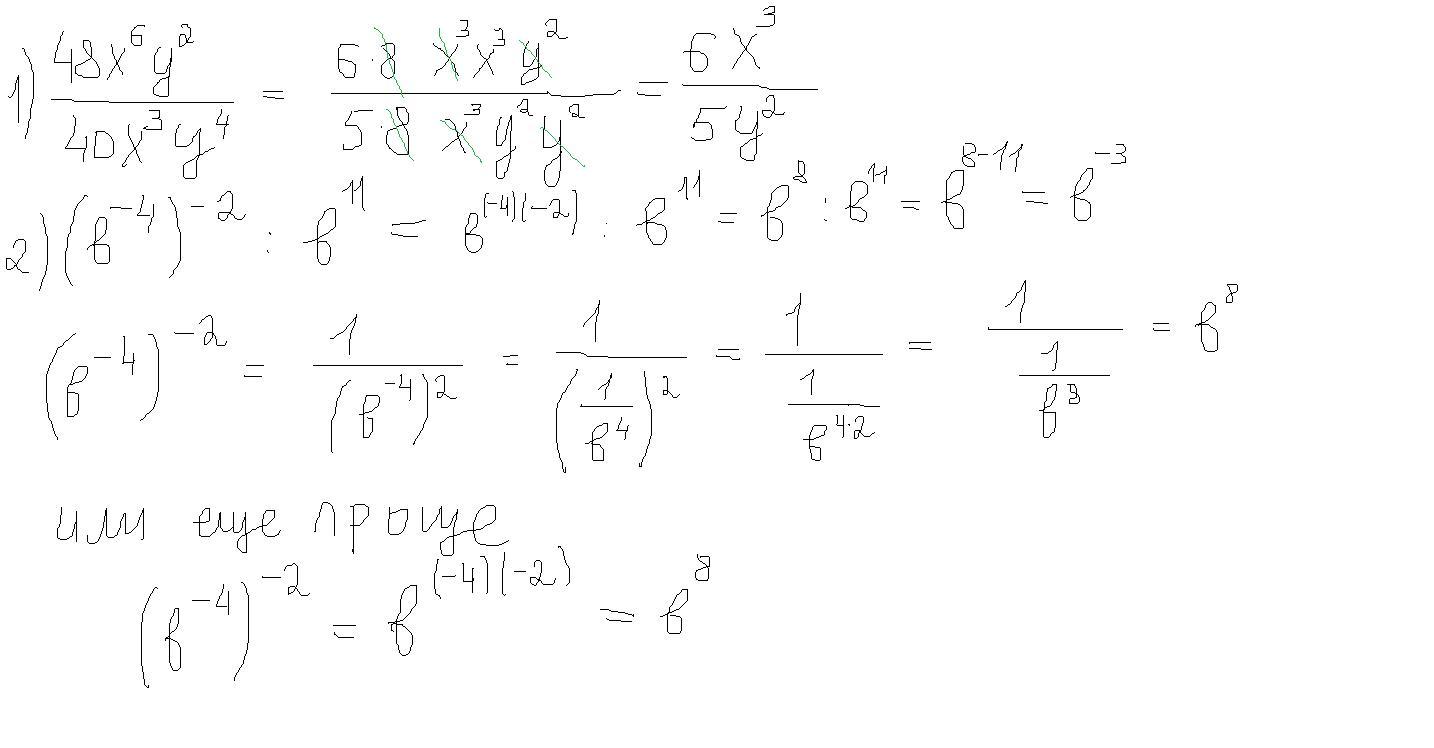 1) 48x⁶y² / 40x³y⁴ = 6·8 x³x³y² / 5·8 x³y²y² = 6x³ / 5y²
2) (в⁻⁴)⁻² : в¹¹ = в⁽⁻⁴⁾⁽⁻²⁾ : в¹¹ = в⁸ : в¹¹ = в⁸⁻¹¹ = в⁻³
(в⁻⁴)⁻² = 1 / (в⁻⁴)² = 1 / (1 / в⁴)² = 1 / (1 / в⁴·²) = 1 / (1 / в⁸) = в⁸
или еще проще
(в⁻⁴)⁻² = в⁽⁻⁴⁾⁽⁻²⁾ = в⁸